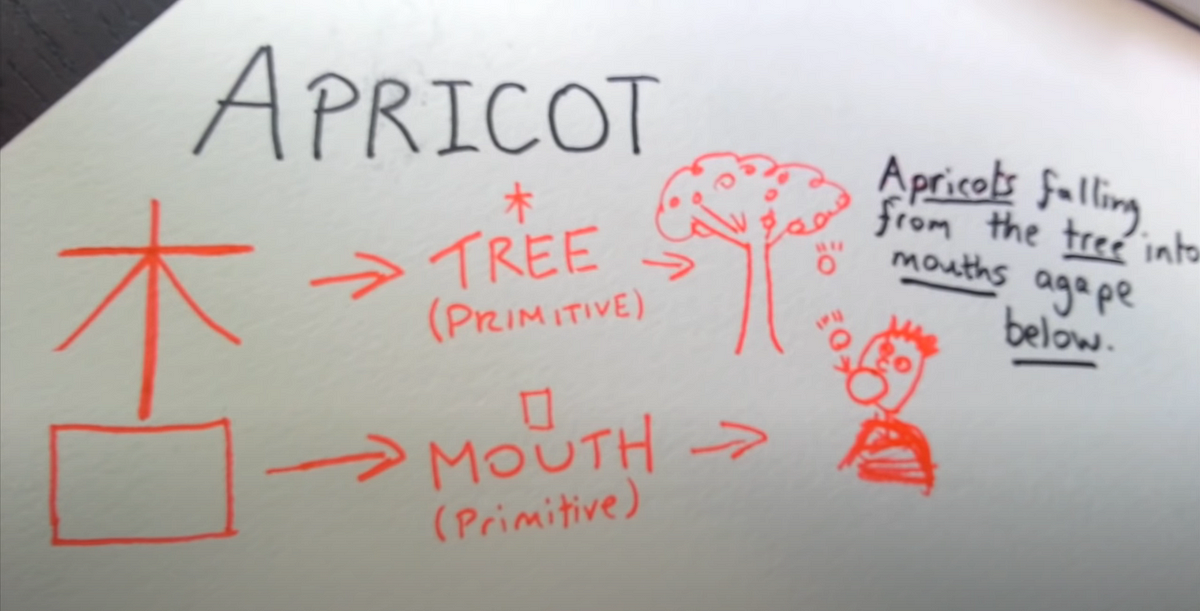 APRICOT
木
TREE
(PRIMITIVE)
口
MOUTH
(Primitive)
Apricots falling
from the tree into
mouths agape
below.